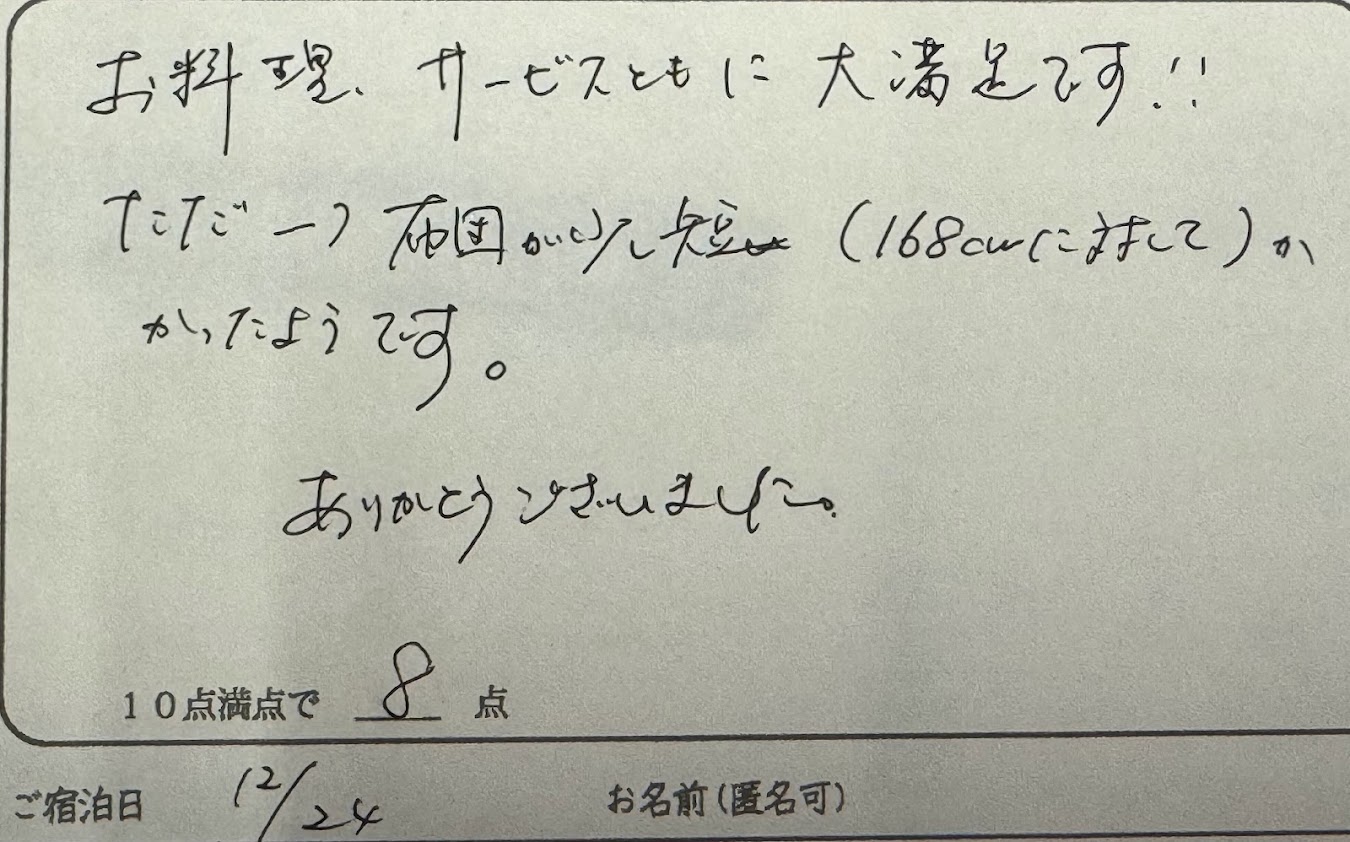 お料理、サービスともに大満足です!!
ただ一つ布団が少し短(168cmに対して)か
かったようです。
ありがとうございました。
10点満点で 8 点
ご宿泊日 12/24 お名前(匿名可)